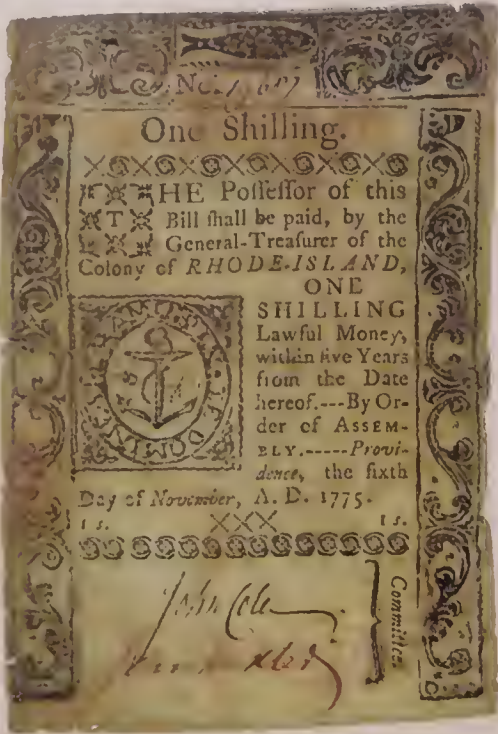 No.
One Shilling.
THE Poſſeſſor of this
Bill ſhall be paid, by the
General-Treaſurer of the
Colony of RHODE-ISLAND,
ONE
SHILLING
Lawful Money,
within five Years
from the Date
hereof.---By Or-
der of ASSEM-
BLY.-----Provi-
dence, the ſixth
Day of November, A. D. 1775.
1 s. XXX 1 s.
John Cole
Committee.